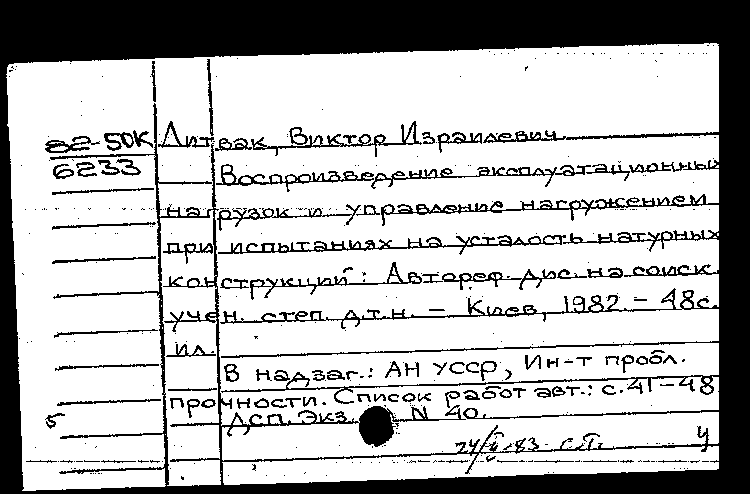 82-50К Литвак, Виктор Израилевич
6233 Воспроизведение эксплуатационных
нагрузок и управление нагружением
при испытаниях на усталость натурных
конструкций: Автореф. дис. на соиск.
учен. степ. д.т.н. – Киев, 1982. – 48с.
ил.
В надзаг.: АН УССР, Ин-т пробл.
прочности. Список работ авт.: с.41–48
5 Дсп. Экз. N 40.
83 с.п. У